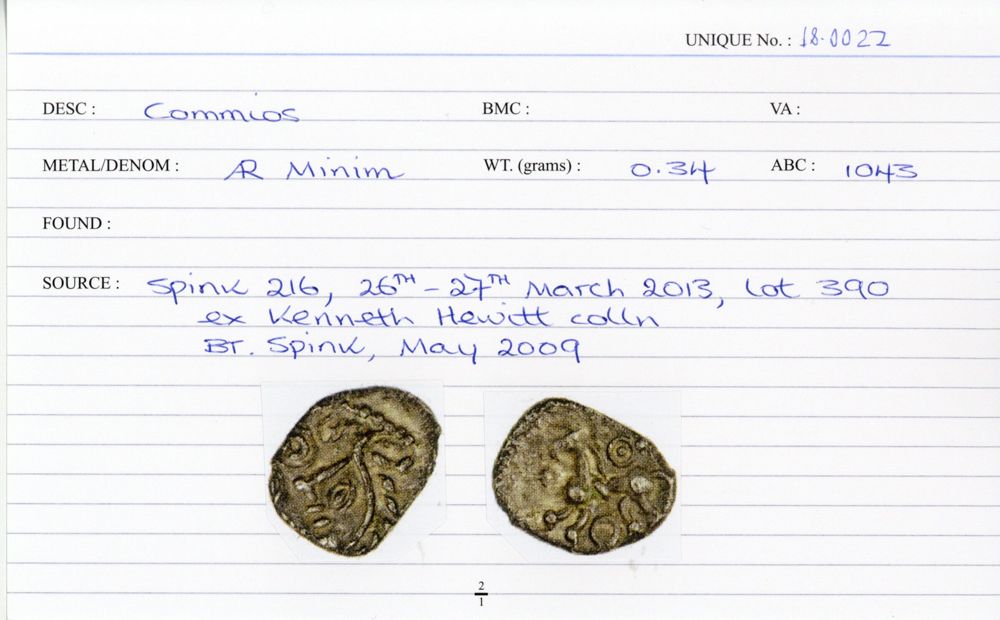 UNIQUE No. : 18.0022
DESC : Commios BMC : VA :
METAL/DENOM : AR Minim WT. (grams) : 0.34 ABC : 1043
FOUND :
SOURCE : Spink 216, 26TH - 27TH March 2013, Lot 390
ex Kenneth Hewitt colln
BT. Spink, May 2009
2
1